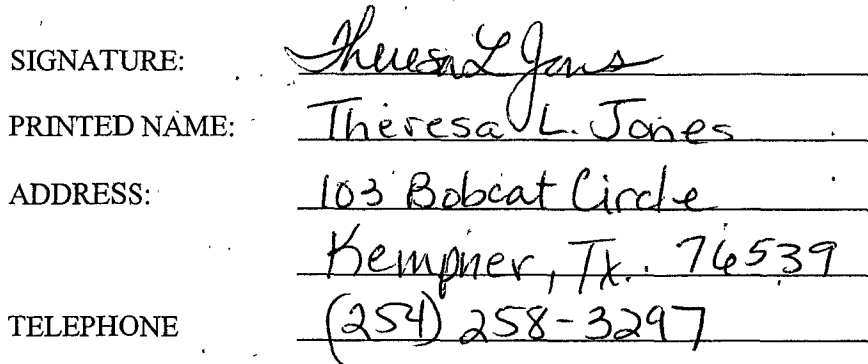 SIGNATURE: Theresa L Jones
PRINTED NAME: Theresa L. Jones
ADDRESS: 103 Bobcat Circle
Kempner, Tx. 76539
TELEPHONE (254) 258-3297